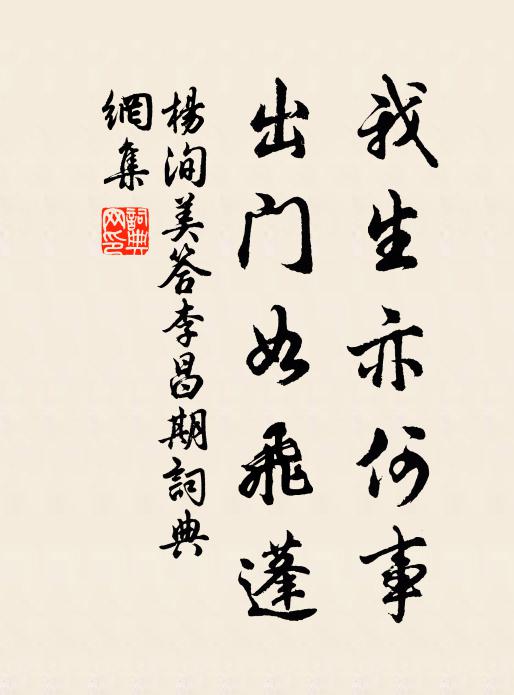 我生亦何事
出门如飛蓬
楊洵美答李昌期詞典
網集
詞典
网印